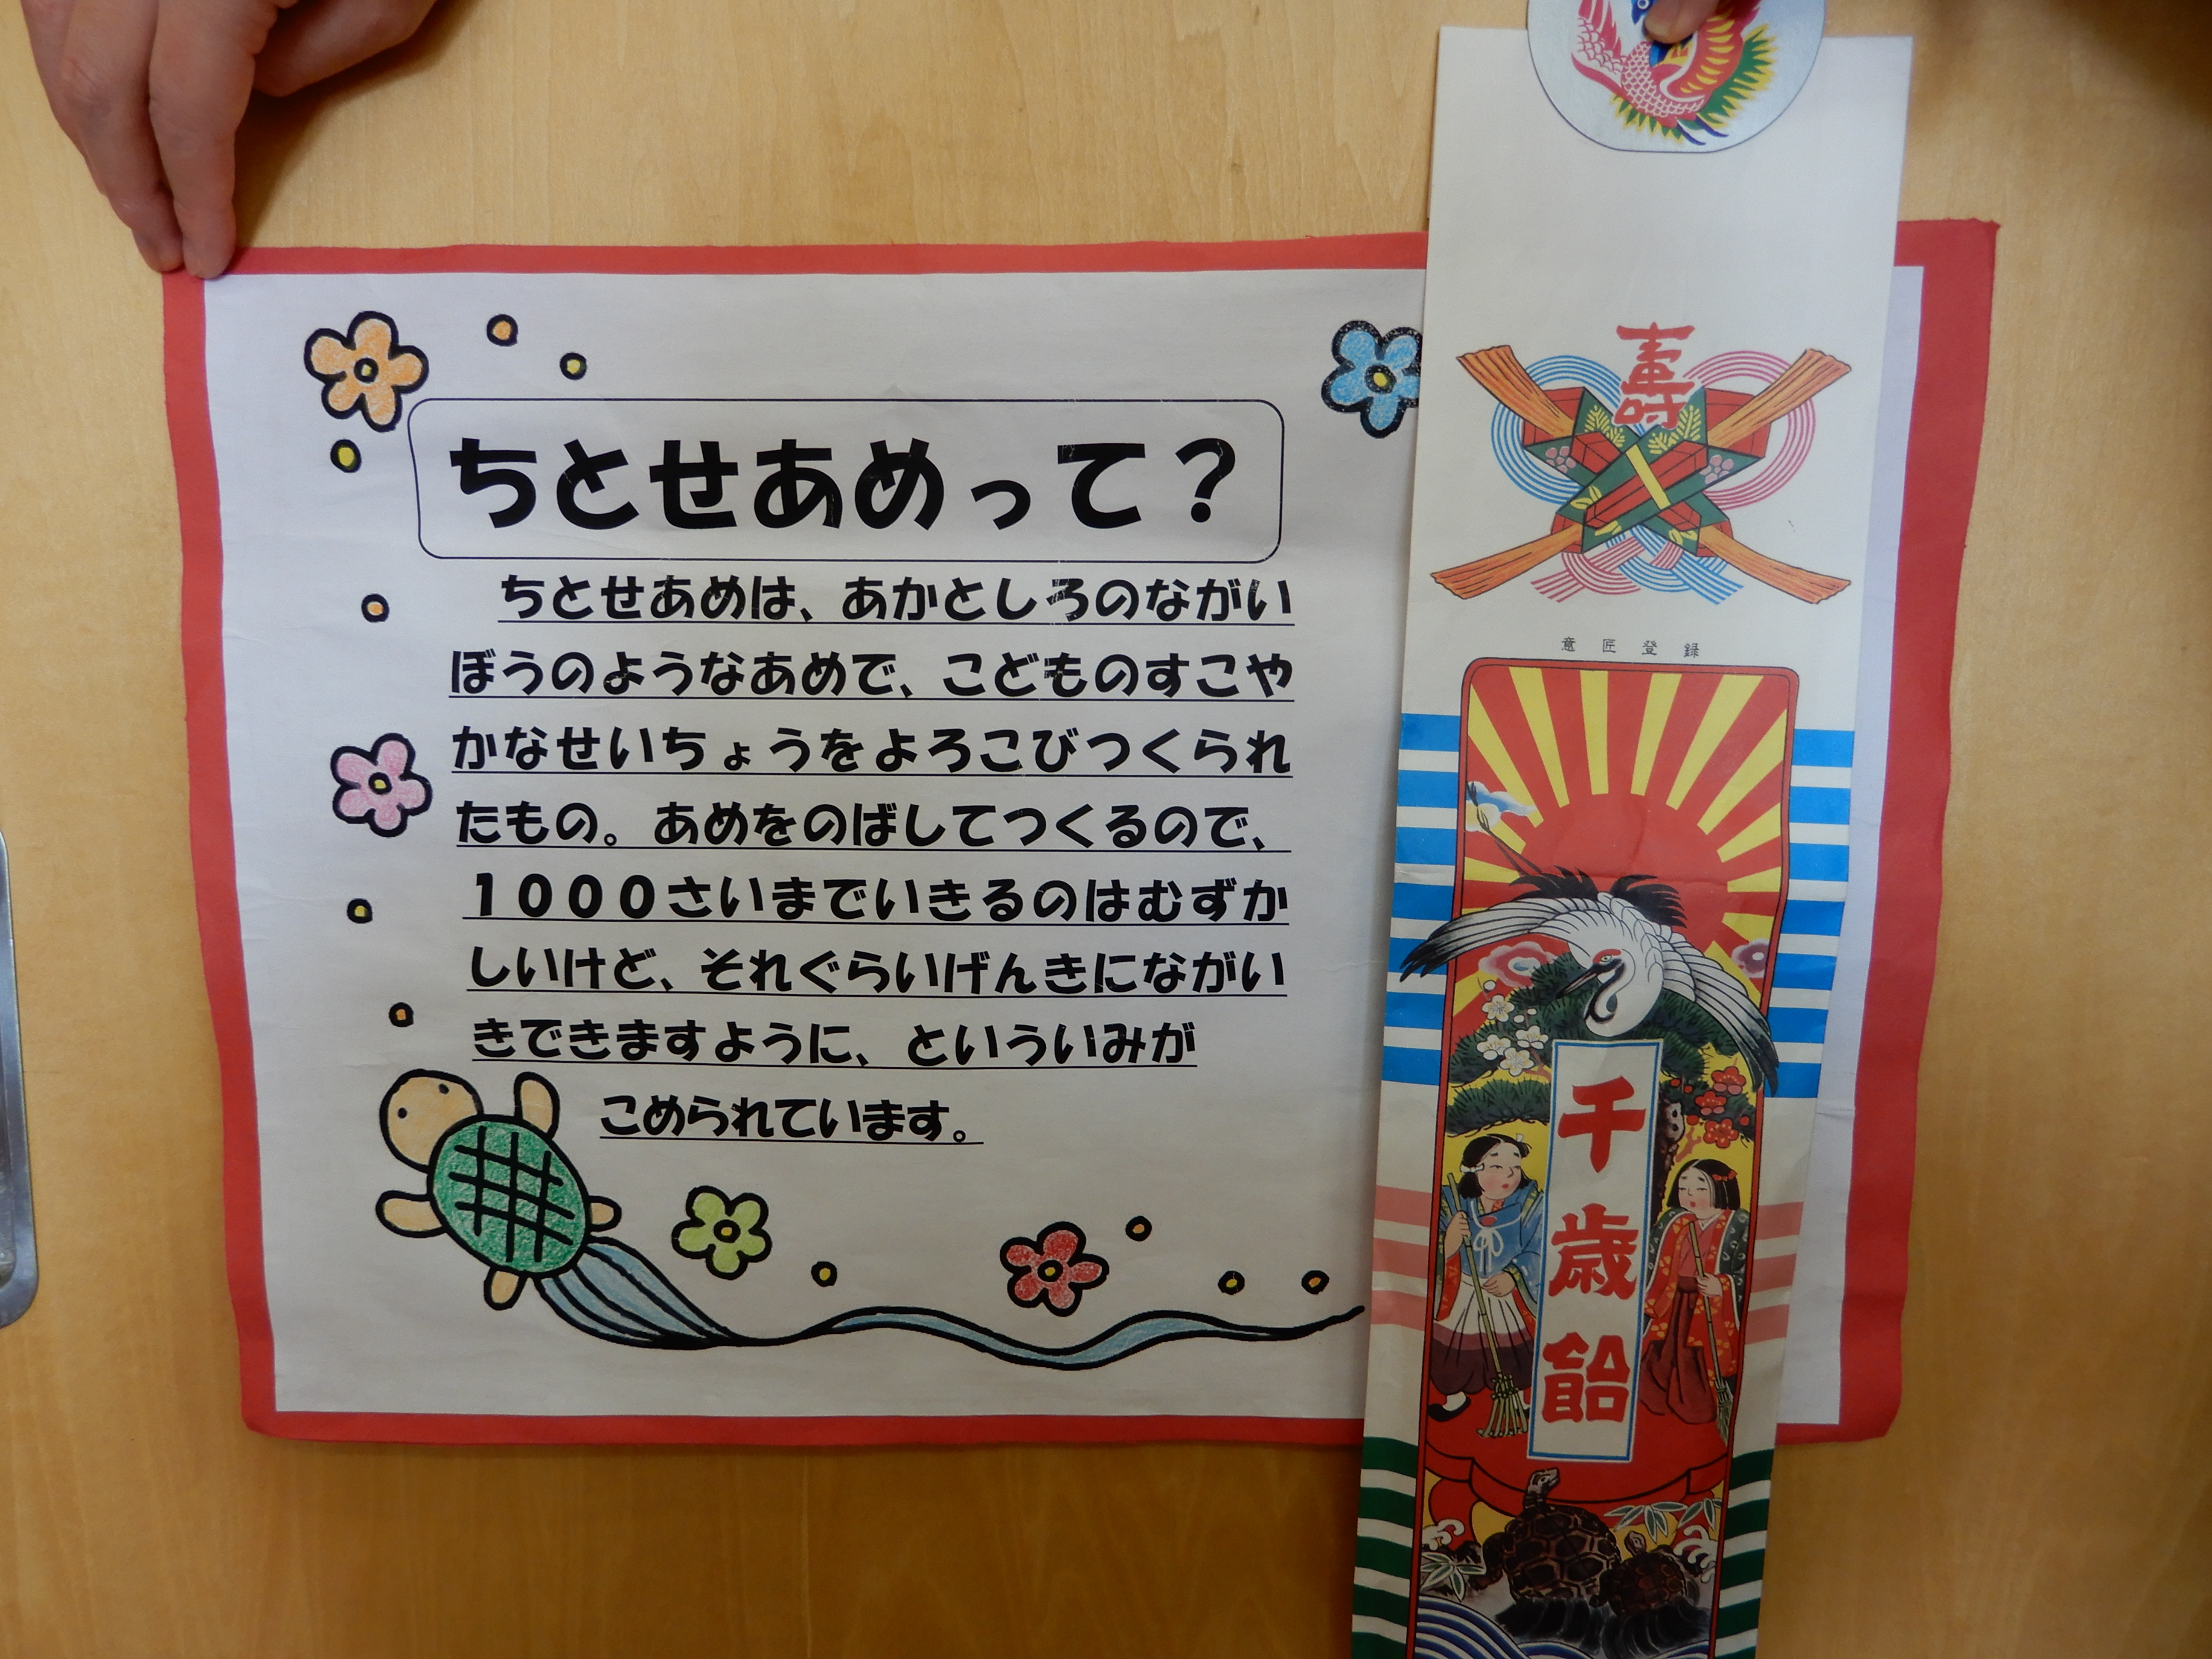 ちとせあめって？
ちとせあめは、あかとしろのながい
ぼうのようなあめで、こどものすこや
かなせいちょうをよろこびつくられ
たもの。あめをのばしてつくるので、
１０００さいまでいきるのはむずか
しいけど、それぐらいげんきにながい
きできますように、といういみが
こめられています。
壽
意匠登録
千歳飴